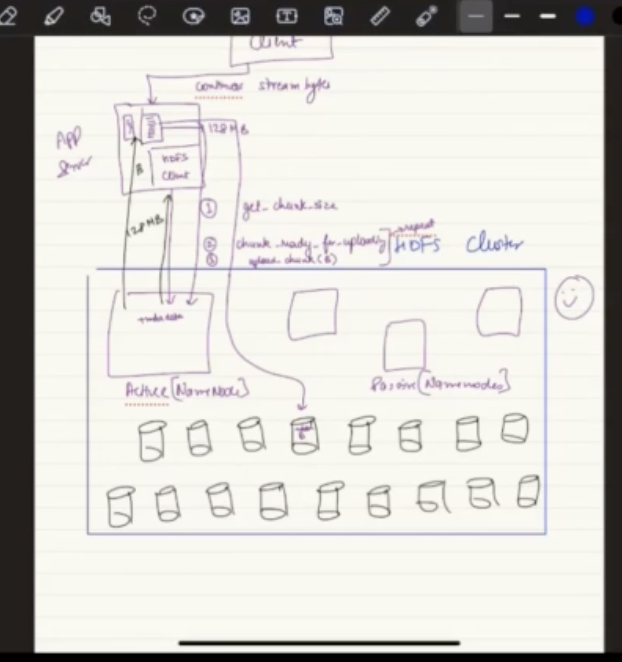 Client
continuos stream bytes
App
Server
128 MB
B
HDFS
Client
128 MB
① get_chunk_size
② chunk_ready_for_uploading
③ upload_chunk(B)
repeat
HDFS Cluster
metadata
Active [NameNode]
Passive [Namenodes]
B